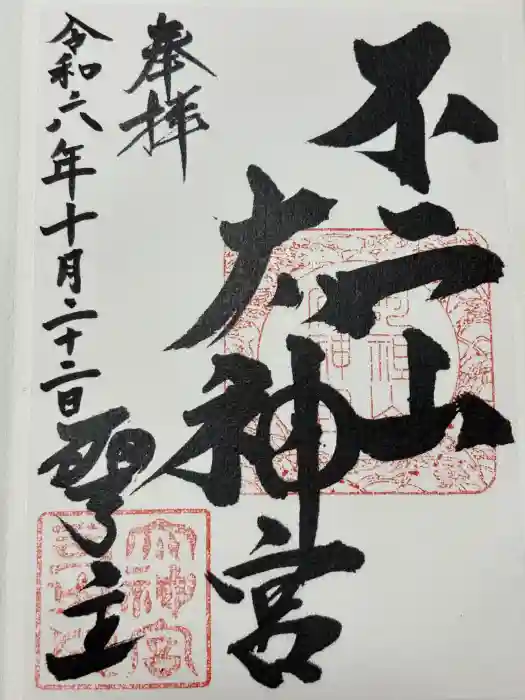 不二山
大神宮
奉拝
令和六年十月二十二日
聖主
大神宮